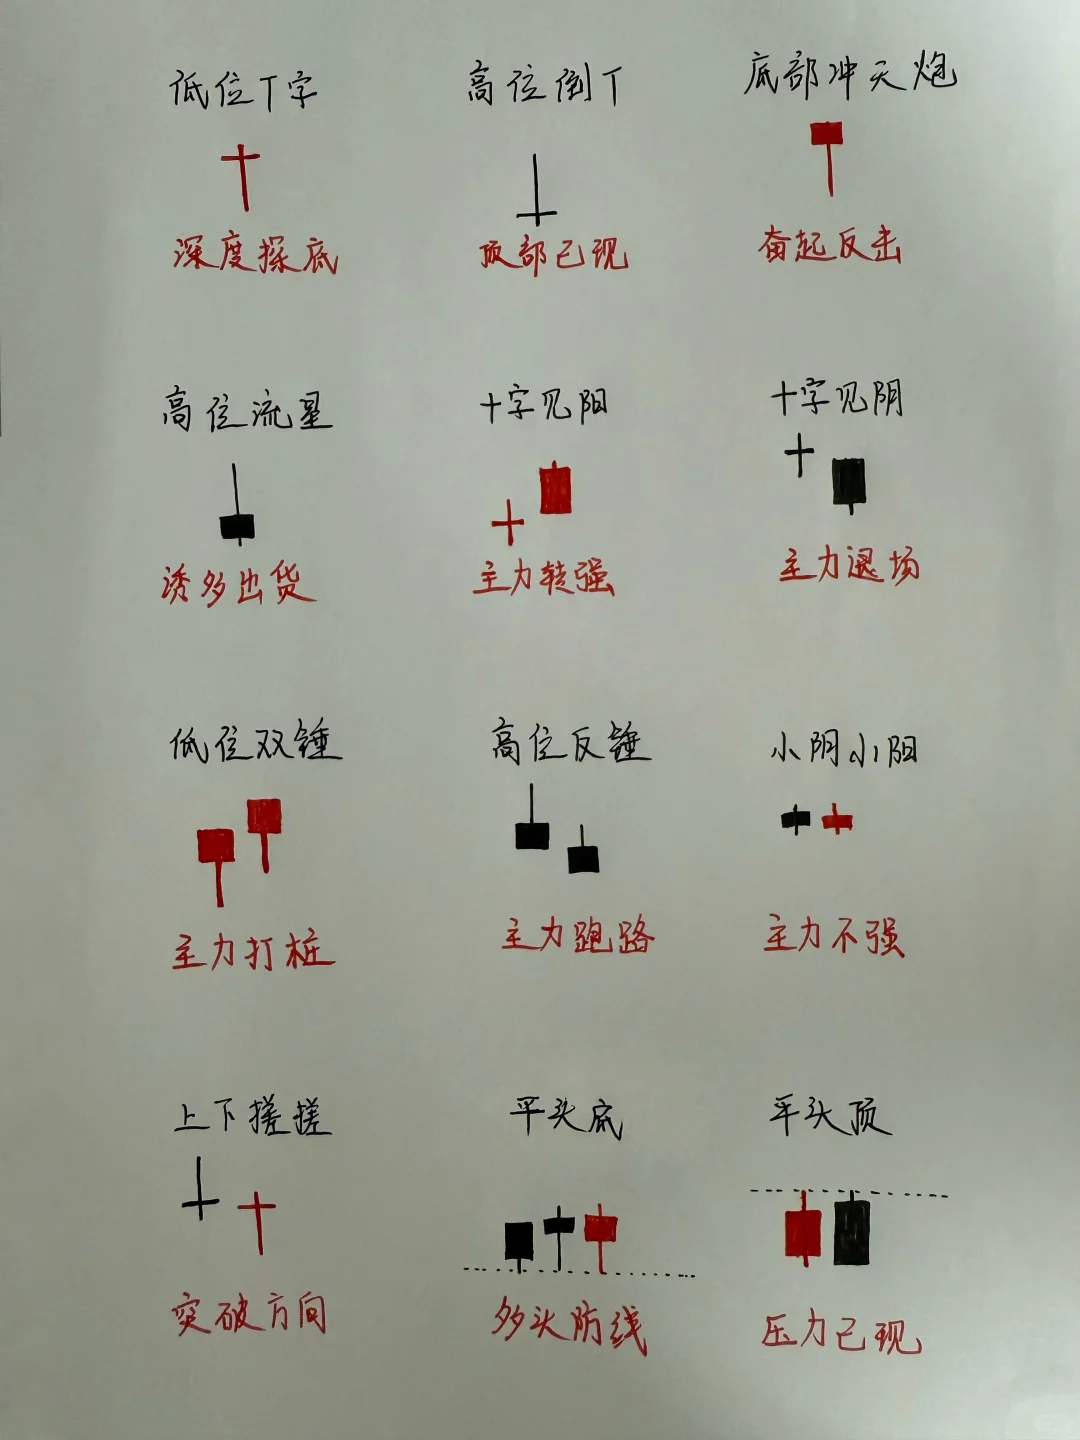 低位T字
高位倒T
底部冲天炮
深度探底
顶部已现
奋起反击
高位流星
十字见阳
十字见阴
诱多出货
主力转强
主力退场
低位双锤
高位反锤
小阴小阳
主力打桩
主力跑路
主力不强
上下搓搓
平头底
平头顶
突破方向
多头防线
压力已现